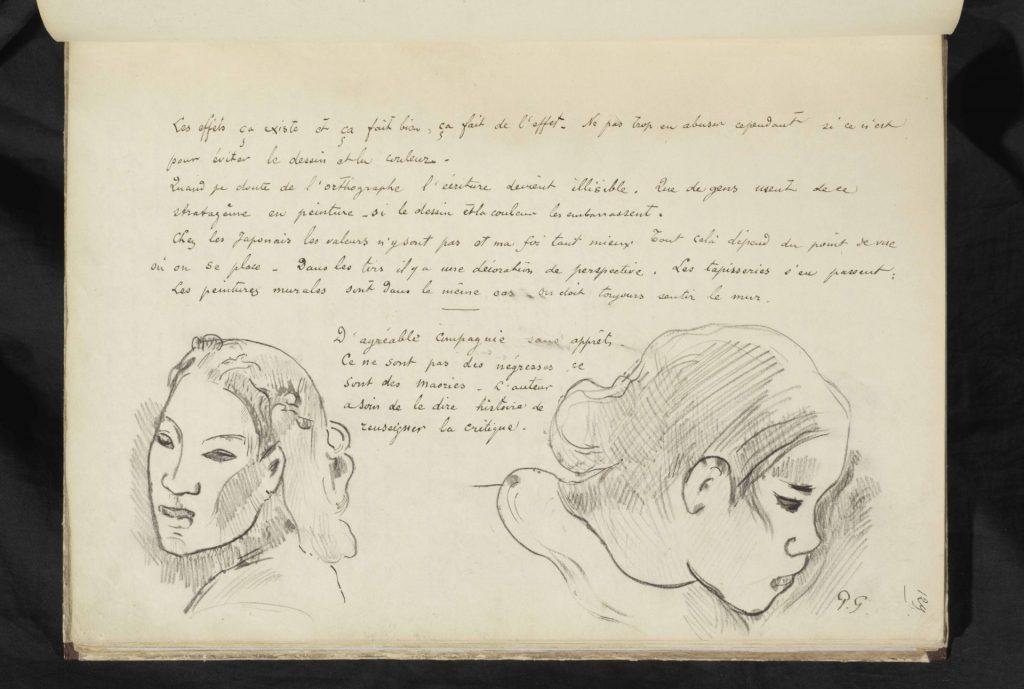 Les effets ça existe et ça fait bien, ça fait de l'effet. Ne pas trop en abuser cependant si ce n'est
pour éviter le dessin et la couleur -
Quand je doute de l'orthographe l'écriture devient illisible. Que de gens usent de ce
stratagême en peinture - si le dessin et la couleur les embarrassent.
Chez les Japonais les valeurs n'y sont pas et ma foi tant mieux Tout celà dépend du point de vue
où on se place - Dans les tirs il y a une décoration de perspective. Les tapisseries s'en passent;
Les peintures murales sont dans le même cas on doit toujours sentir le mur.
D'agréable compagnie sans apprêts.
Ce ne sont pas des négresses ce
sont des maories - L'auteur
a soin de le dire histoire de
renseigner la critique.
P.G.